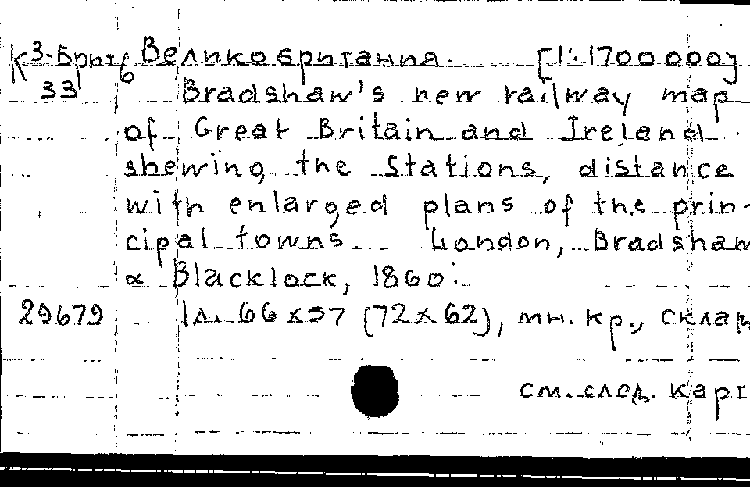 К 3-Брит Великобритания. [1:1700000]
33 6 Bradshaw's new railway map
of Great Britain and Ireland
shewing the Stations, distance
with enlarged plans of the prin-
cipal towns. London, Bradshaw
& Blacklock, 1860.
29679 1 л. 66x57 (72x62), мн. кр., склад
см. след. карт